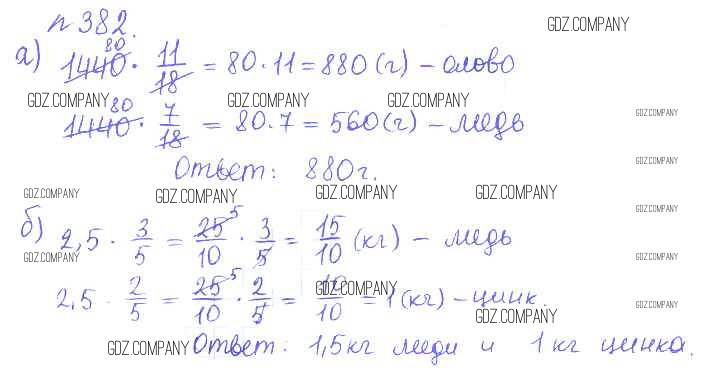 n 382.
GDZ.COMPANY
а) 1440 80 · 11/18 = 80 · 11 = 880 (г) – олово
GDZ.COMPANY GDZ.COMPANY GDZ.COMPANY
GDZ.COMPANY
1440 80 · 7/18 = 80 · 7 = 560 (г) – медь
GDZ.COMPANY
Ответ: 880 г.
GDZ.COMPANY GDZ.COMPANY GDZ.COMPANY GDZ.COMPANY
GDZ.COMPANY
б) 2,5 · 3/5 = 25 5/10 · 3/5 = 15/10 (кг) – медь
GDZ.COMPANY GDZ.COMPANY
GDZ.COMPANY
2,5 · 2/5 = 25 5/10 · 2/5 = 10/10 = 1 (кг) – цинк.
GDZ.COMPANY GDZ.COMPANY
GDZ.COMPANY
Ответ: 1,5 кг меди и 1 кг цинка.